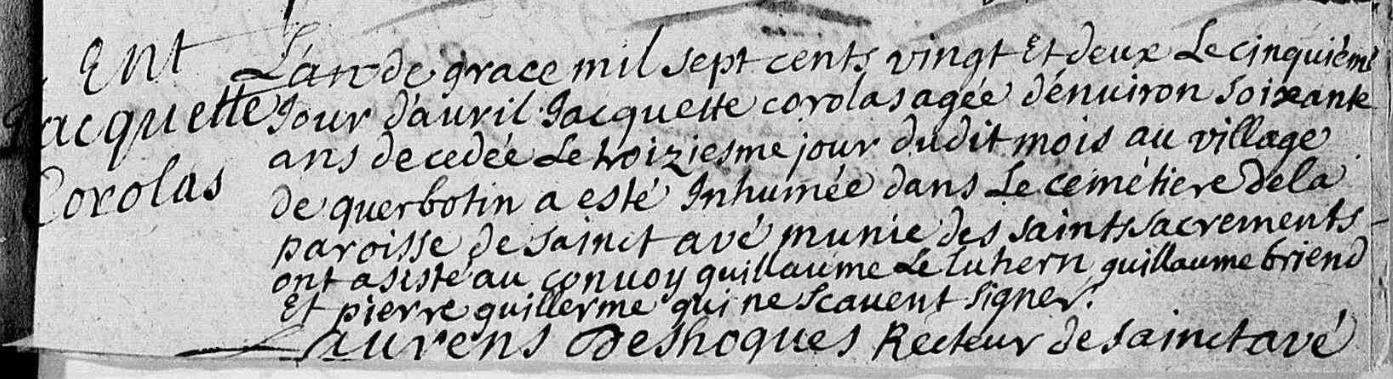 Ent
Jacquette
Corolas
L'an de grace mil sept cents vingt Et deux Le cinquiéme
Jour d'auril Jacquette corolas agée d'énuiron soixante
ans decedée Le troiziesme jour dudit mois au village
de querbotin a esté Inhumée dans Le cemétiere de la
paroisse de sainct avé munie des saints sacrements
ont asisté au convoy guillaume Le luhern guillaume briend
Et pierre guillerme qui ne scauent signer.
Laurens Deshoques Recteur de sainct avé